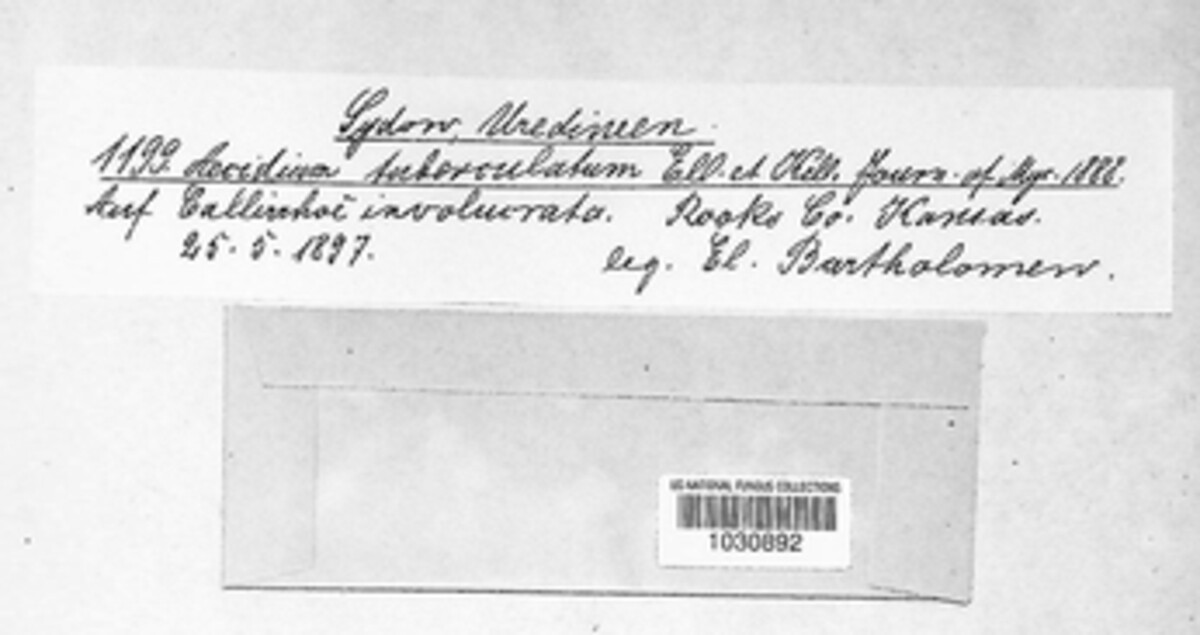 Sydow, Uredineen.
1199. Aecidium tuberculatum Ell. et Kell. Journ. of Myc. 1888.
Auf Callirrhoë involucrata. Rooks Co. Kansas.
25. 5. 1897. leg. El. Bartholomew.
US NATIONAL FUNGUS COLLECTIONS
1030892